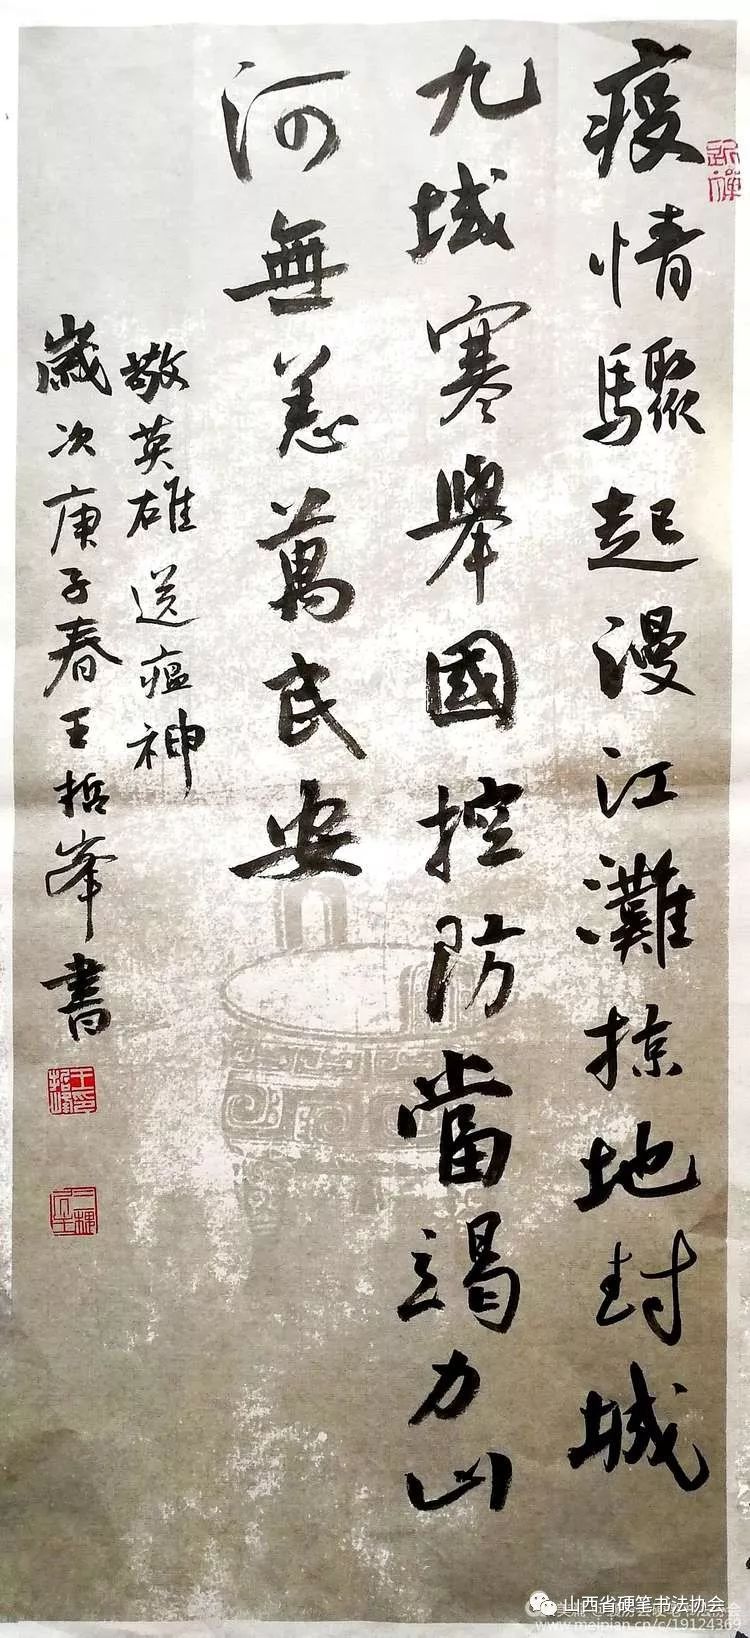 疫情驟起漫江灘掠地封城
九域寒舉國控防當竭力山
河無恙萬民安
敬英雄送瘟神
歲次庚子春王哲峯書
王哲峰印
山西省硬笔书法协会
www.meipian.cn/c/19124369